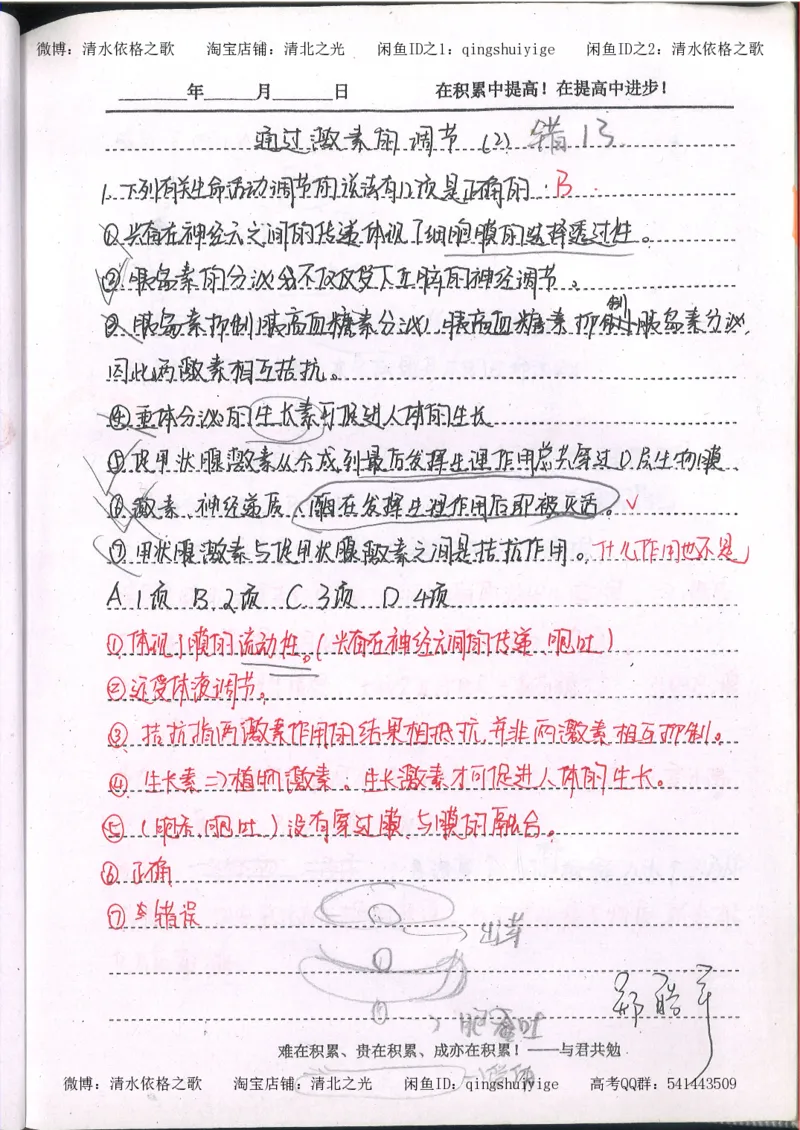 微博：清水依格之歌 淘宝店铺：清北之光 闲鱼ID之1：qingshuiyige 闲鱼ID之2：清水依格之歌
年 月 日 在积累中提高！在提高中进步！
通过激素的调节 (2) 错13
1.下列有关生命活动调节的叙述有几项是正确的：B.
①兴奋在神经元之间的传递体现了细胞膜的选择透过性。
②胰岛素的分泌不仅仅受下丘脑的神经调节。
③胰岛素抑制胰高血糖素分泌，胰高血糖素抑制胰岛素分泌，
因此两激素相互拮抗。
④垂体分泌的生长素可促进人体的生长
⑤促甲状腺激素从合成到最后发挥生理作用总共穿过0层生物膜
⑥激素、神经递质、酶在发挥生理作用后即被灭活。✓
⑦甲状腺激素与促甲状腺激素之间是拮抗作用。什么作用也不是
A.1项 B.2项 C.3项 D.4项
①体现了膜的流动性。(兴奋在神经元间的传递、胞吐)
②还受体液调节。
③拮抗指两激素作用的结果相抵抗，并非两激素相互抑制。
④生长素⇒植物激素、生长激素才可促进人体的生长。
⑤(胞吞、胞吐)没有穿过膜，与膜的融合。
⑥正确
⑦错误
出芽
胞吐
难在积累、贵在积累、成亦在积累！——与君共勉
微博：清水依格之歌 淘宝店铺：清北之光 闲鱼ID：qingshuiyige 高考QQ群：541443509